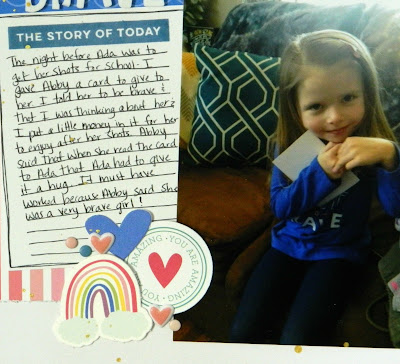 THE STORY OF TODAY
The night before Ada was to
get her shots for school. I
gave Abby a card to give to
her. I told her to be brave &
that I was thinking about her &
I put a little money in it for her
to enjoy after her shots. Abby
said that when she read the card
to Ada that Ada had to give
it a hug. It must have
worked because Abby said she
was a very brave girl!
AMAZING • YOU ARE AMAZING • YOU